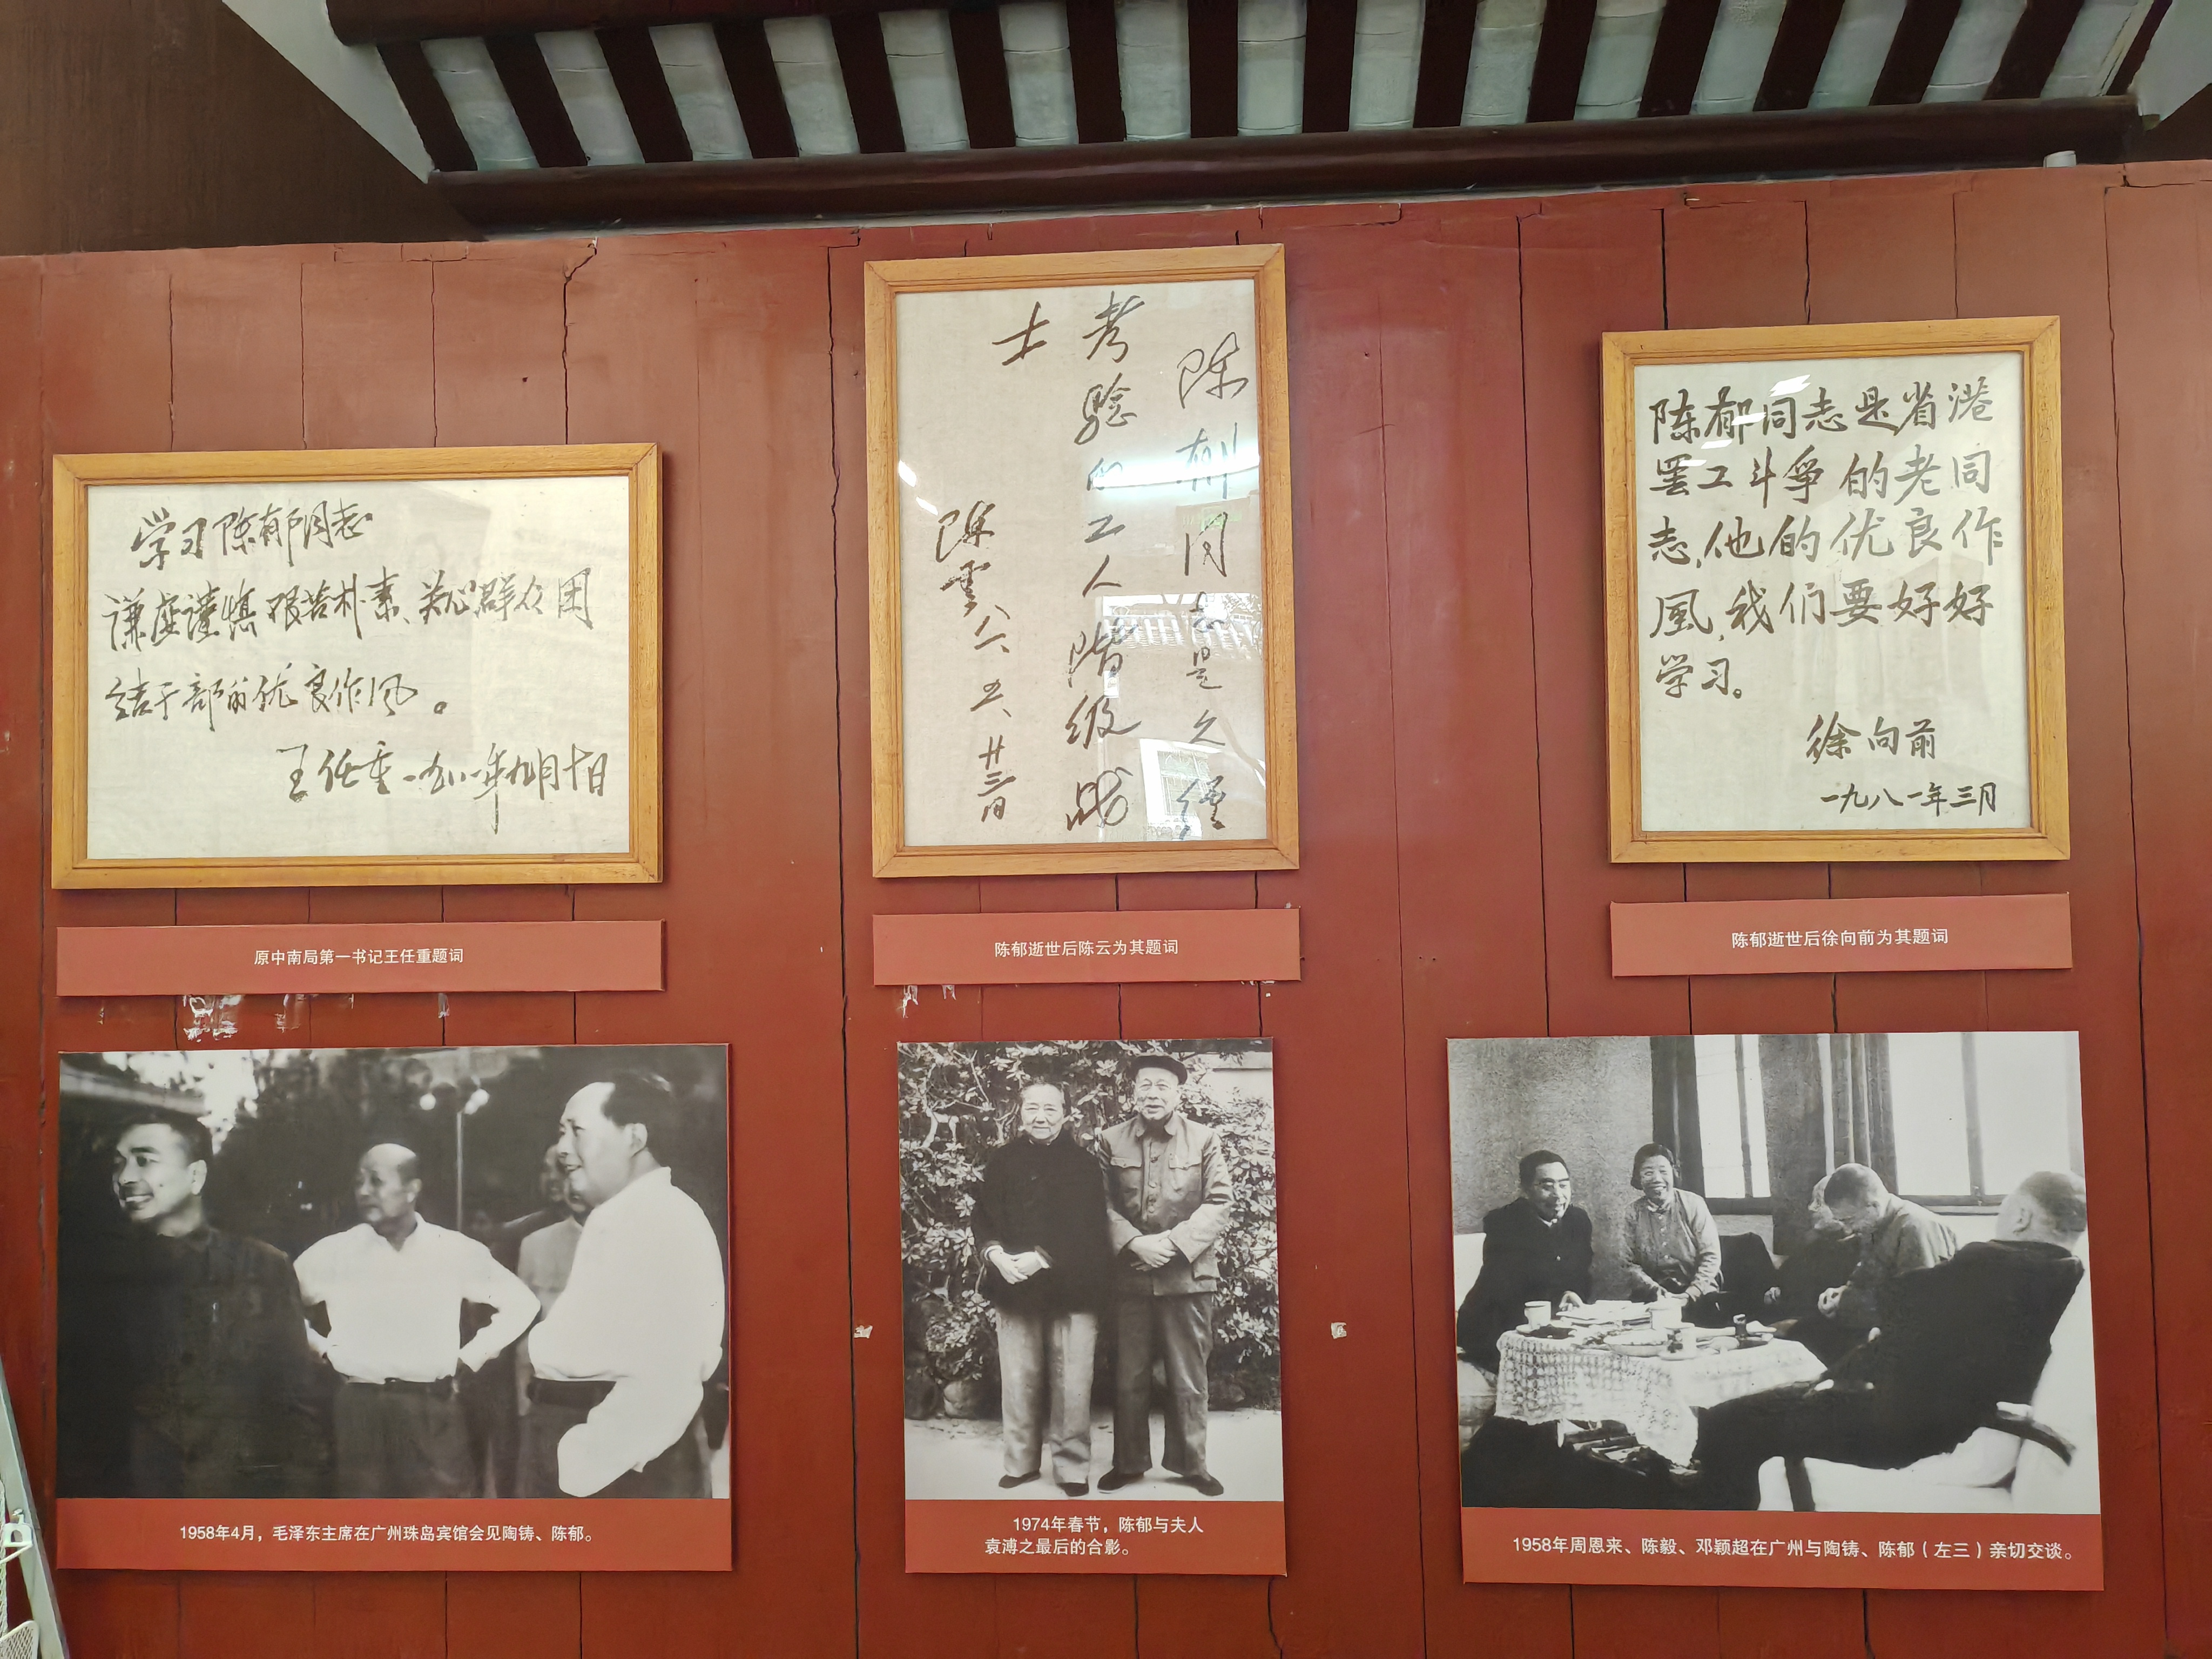 学习陈郁同志
谦虚谨慎艰苦朴素、关心群众团
结干部的优良作风。
王任重一九八一年九月十日
原中南局第一书记王任重题词
陈郁同志是久经
考验的工人阶级战
士
陈云 八一、五、廿三日
陈郁逝世后陈云为其题词
陈郁同志是省港
罢工斗争的老同
志,他的优良作
風,我们要好好
学习。
徐向前
一九八一年三月
陈郁逝世后徐向前为其题词
1958年4月，毛泽东主席在广州珠岛宾馆会见陶铸、陈郁。
1974年春节，陈郁与夫人
袁溥之最后的合影。
1958年周恩来、陈毅、邓颖超在广州与陶铸、陈郁（左三）亲切交谈。